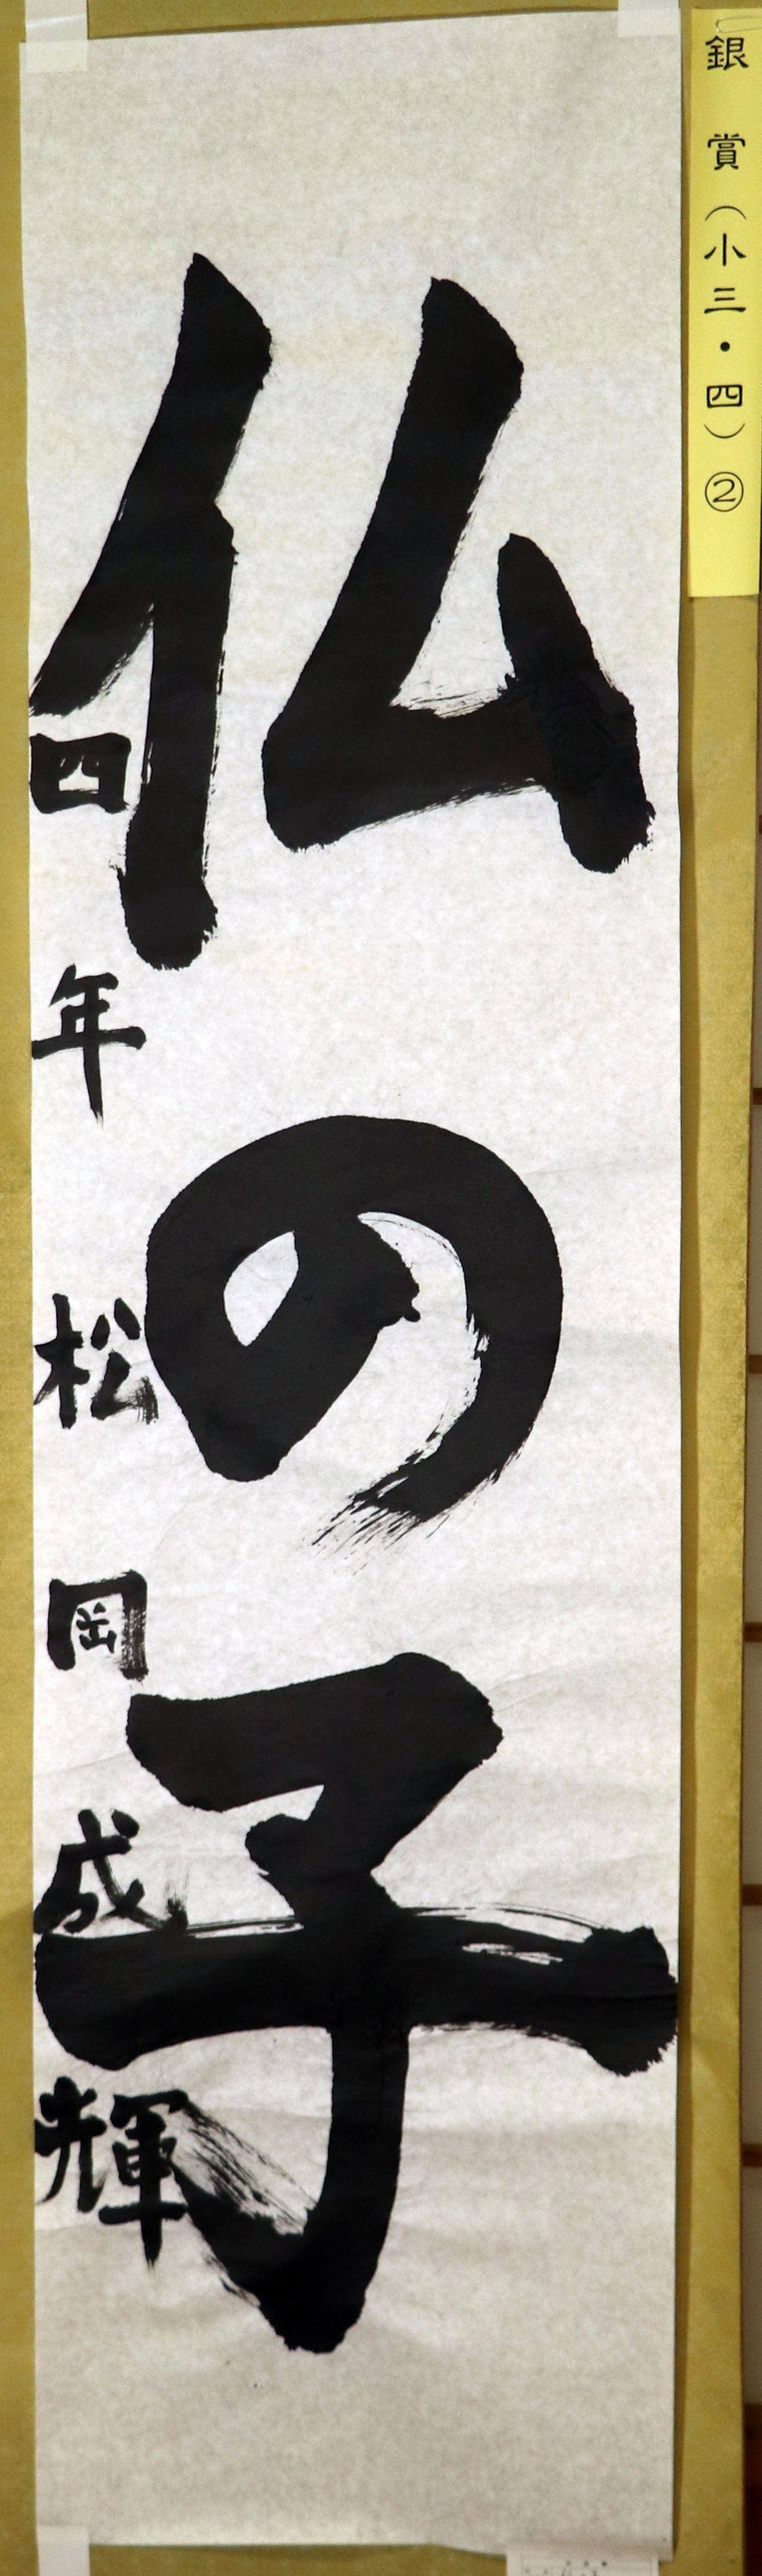 銀賞(小三・四)②
仏の子
四年 松岡成輝